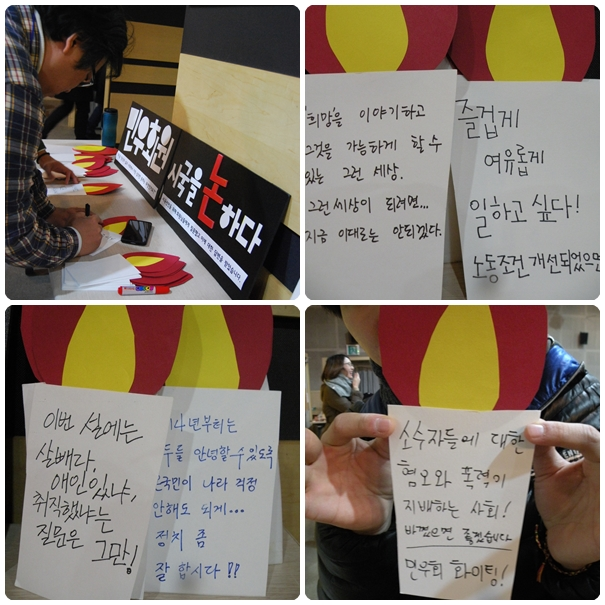 민우회원
시국을 논하다
희망을 이야기하고
그것을 가능하게 할 수
있는 그런 세상.
그런세상이 되려면...
지금 이대로는 안되겠다.
즐겁게
여유롭게
일하고 싶다!
노동조건 개선되었으면
이번 설에는
살빼라,
애인있냐,
취직했냐는
질문은 그만!
14년부터는
모두들 안녕할 수 있도록
국민이 나라 걱정
안해도 되게...
정치 좀
잘 합시다!!
소수자들에 대한
혐오와 폭력이
지배하는 사회!
바꼈으면 좋겠습니다
민우회 화이팅!